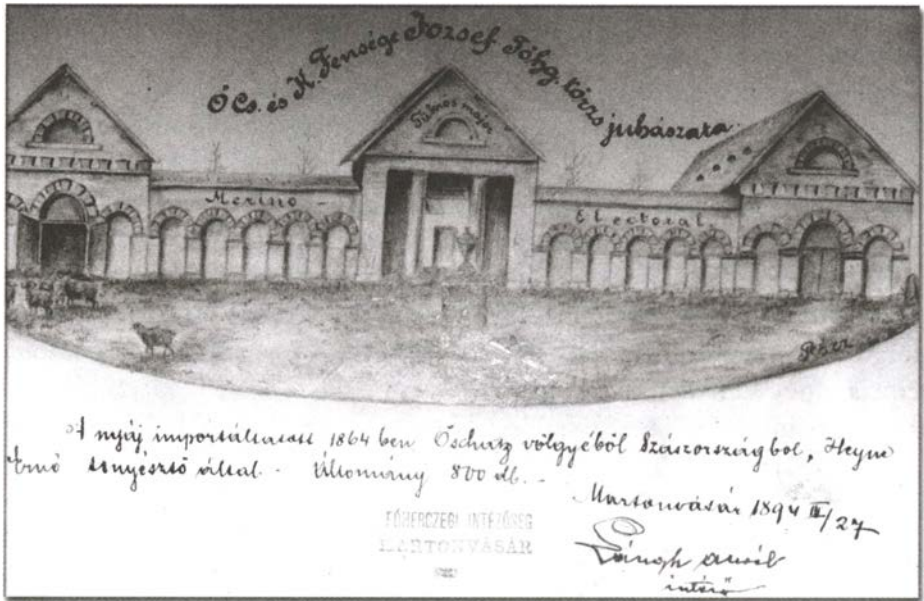 Ő Cs. és K. Fensége József Főhg. törzs juhászata.
major
Merino - Electoral
A nyáj importáltatott 1864 ben Oschatz völgyéből Szászországból, Heyne
Ernő tenyésztő által. - Állomány 800 db. -
Martonvásár 1894 III/27
FŐHERCZEGI INTÉZŐSÉG
MARTONVÁSÁR
intéző